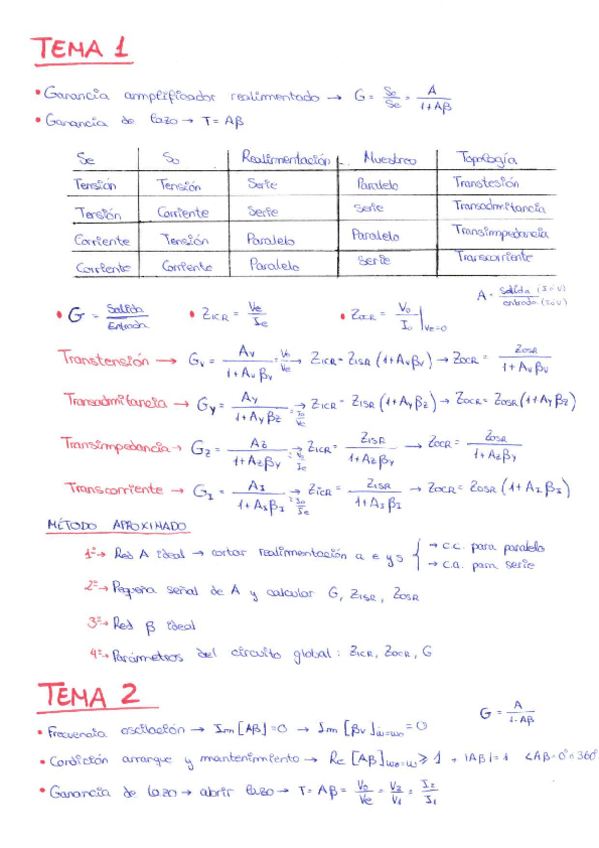 TEMA 1
• Ganancia amplificador realimentado → G = So/Se = A/(1+Aβ)
• Ganancia de lazo → T = Aβ
Se So Realimentación Muestreo Topología
Tensión Tensión Serie Paralelo Transtesión
Tensión Corriente Serie Serie Transadmitancia
Corriente Tensión Paralelo Paralelo Transimpedancia
Corriente Corriente Paralelo Serie Transcorriente
A = Salida (I o V)/entrada (I o V)
• G = Salida/Entrada • ZICR = Ve/Ie • ZOCR = Vo/Io |Ve=0
Transtensión → Gv = Av/(1+Avβv) = Vo/Ve → ZICR = ZISR (1+Avβv) → ZOCR = ZOSR/(1+Avβv)
Transadmitancia → Gy = Ay/(1+Ayβz) = Io/Ve → ZICR = ZISR (1+Ayβz) → ZOCR = ZOSR (1+Ayβz)
Transimpedancia → Gz = Az/(1+Azβy) = Vo/Ie → ZICR = ZISR/(1+Azβy) → ZOCR = ZOSR/(1+Azβy)
Transcorriente → GI = AI/(1+AIβI) = Io/Ie → ZICR = ZISR/(1+AIβI) → ZOCR = ZOSR (1+AIβI)
MÉTODO APROXIMADO
1º → Red A ideal → cortar realimentación a e y s { → c.c. para paralelo
→ c.a. para serie
2º → Pequeña señal de A y calcular G, ZISR, ZOSR
3º → Red β ideal
4º → Parámetros del circuito global: ZICR, ZOCR, G
TEMA 2
G = A/(1-Aβ)
• Frecuencia oscilación → Im [Aβ] = 0 → Im [βv]ω=ωo = 0
• Condición arranque y mantenimiento → Re [Aβ]ωo=ω ≥ 1 |Aβ| = 1 ∠Aβ = 0º o 360º
• Ganancia de lazo → abrir lazo → T = Aβ = Vo/Ve = V2/V1 = I2/I1